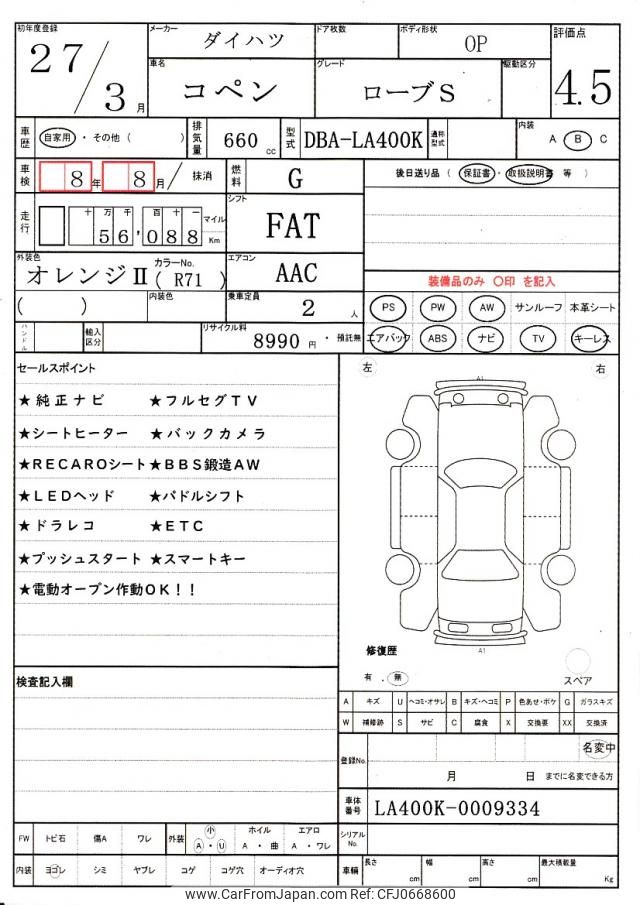 初年度登録 メーカー ダイハツ ドア枚数 ボディ形状 OP 評価点
27/3月 車名 コペン グレード ローブS 駆動区分 4.5
車歴 自家用 ・ その他 ( ) 排気量 660 cc 型式 DBA-LA400K 通称型式 内装 A B C
車検 8年 8月 / 抹消 燃料 G 後日送り品 ( 保証書 ・ 取扱説明書 等 )
走行 十 万 千 百 十 一 マイル Km 56,088 シフト FAT
外装色 オレンジⅡ カラーNo. ( R71 ) エアコン AAC 装備品のみ 〇印 を記入
( ) 内装色 乗車定員 2 人 PS PW AW サンルーフ 本革シート
ハンドル 輸入区分 リサイクル料 8990 円 ・ 預託無 エアバック ABS ナビ TV キーレス
セールスポイント 左 右
★純正ナビ ★フルセグTV A1
★シートヒーター ★バックカメラ
★RECAROシート★BBS鍛造AW
★LEDヘッド ★パドルシフト
★ドラレコ ★ETC
★プッシュスタート ★スマートキー
★電動オープン作動OK!!
A1
修復歴
有 . 無 スペア
検査記入欄
A キズ U ヘコミ・オサレ B キズ・ヘコミ P 色あせ・ボケ G ガラスキズ
W 補修跡 S サビ C 腐食 X 交換要 XX 交換済
登録No. 名変中
月 日 までに名変できる方
車体番号 LA400K-0009334
シリアルNo.
FW トビ石 傷A ワレ 外装 小 A ・ U ホイル A ・ 曲 エアロ A ・ ワレ
内装 ヨゴレ シミ ヤブレ コゲ コゲ穴 オーディオ穴 車輌 長さ cm 幅 cm 高さ cm 最大積載量 Kg
www.CarFromJapan.com Ref: CFJ0668600